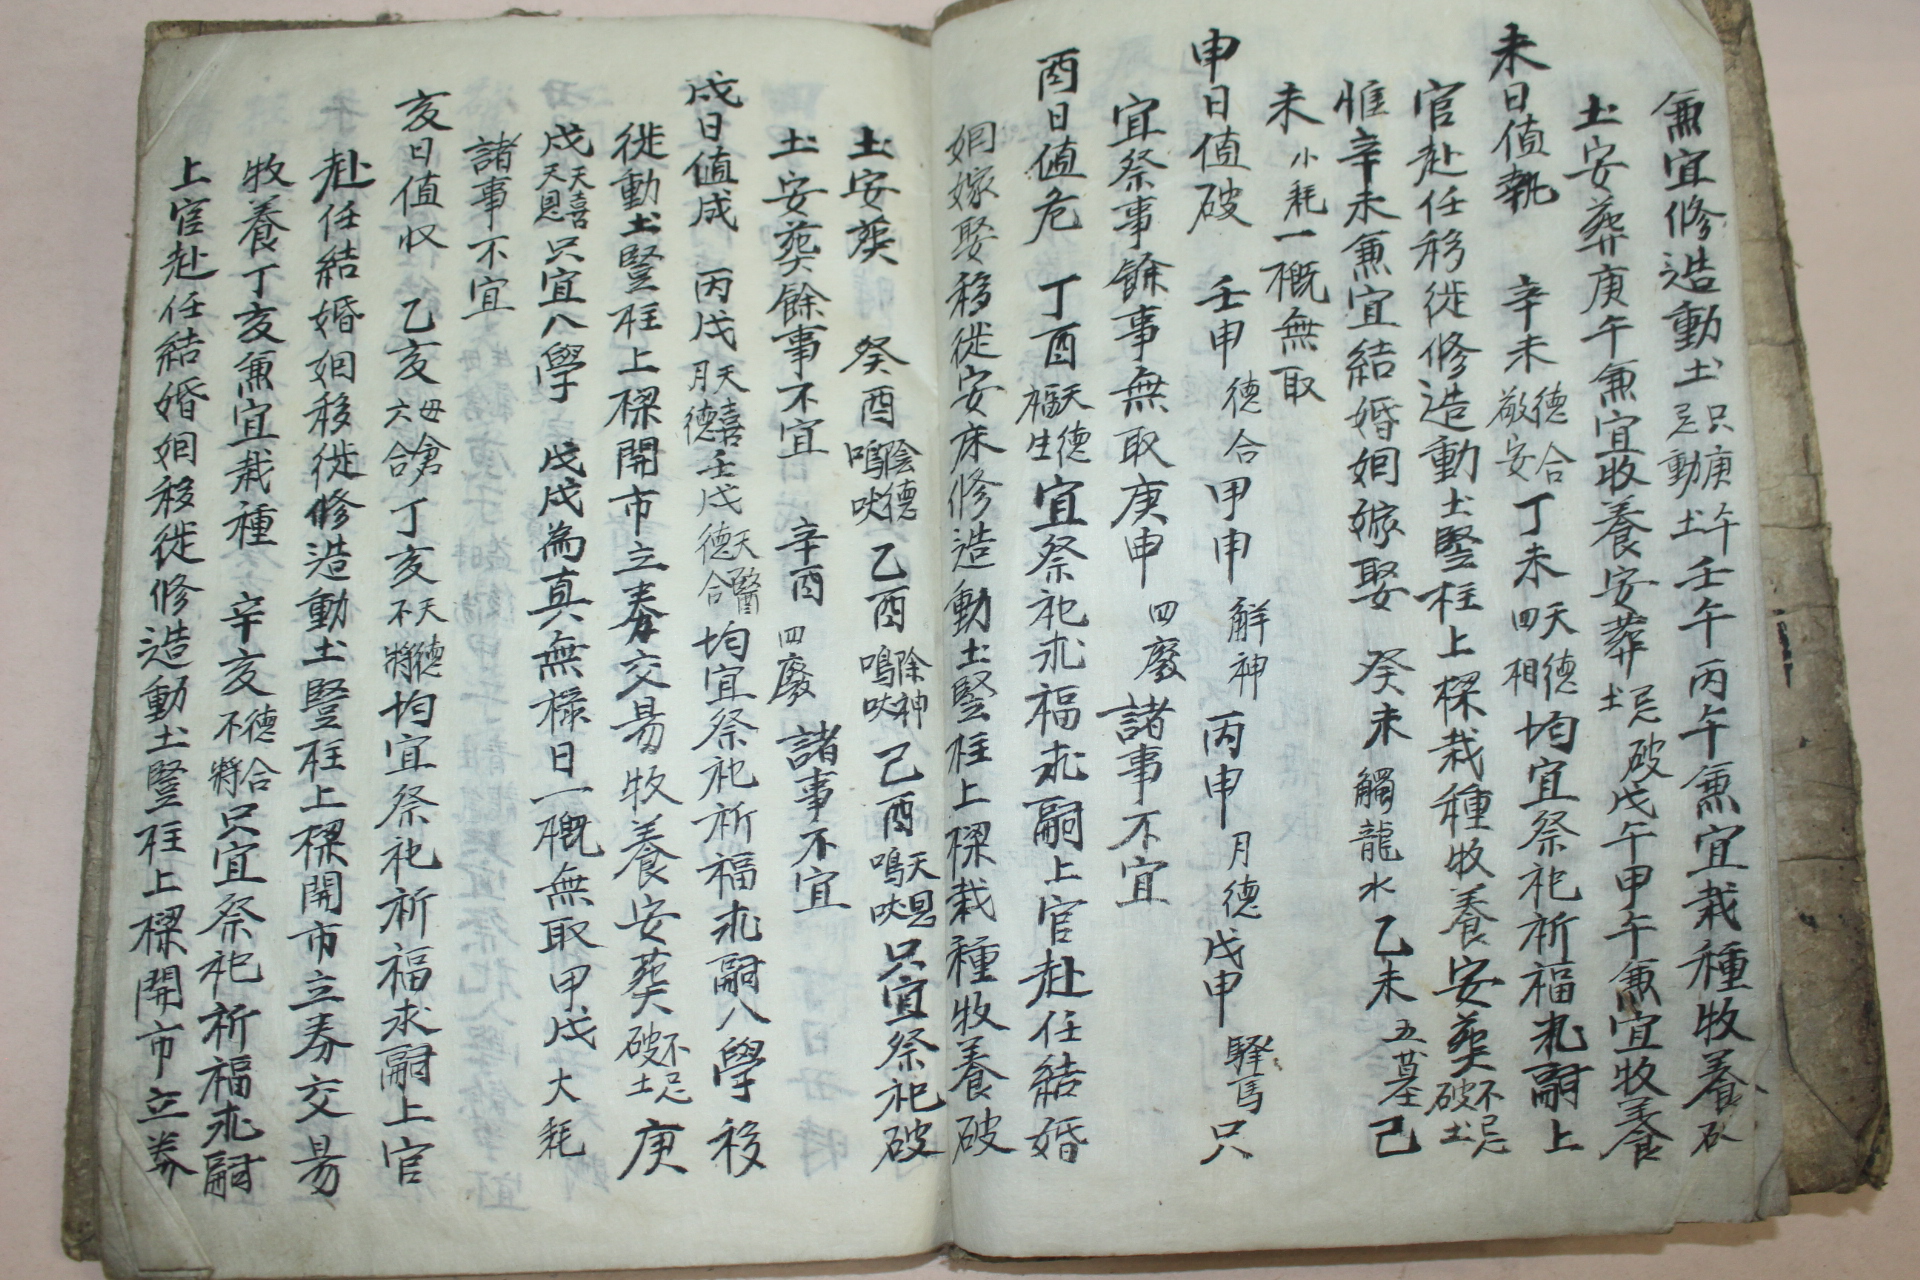 兼宜修造動土只庚午忌動土壬午丙午兼宜栽種牧養破
土安葬庚午兼宜收養安葬忌破土戊午甲午兼宜牧養
未日值執 辛未德合敬安丁未天德四相均宜祭祀祈福求嗣上
官赴任移徙修造動土竪柱上樑栽種牧養安葬不忌破土
惟辛未兼宜結婚姻嫁娶 癸未觸龍水乙未五墓己
未小耗一概無取
申日值破 壬申德合甲申觧神丙申月德戊申驛馬只
宜祭事餘事無取庚申四廢諸事不宜
酉日值危 丁酉天德福生宜祭祀求福求嗣上官赴任結婚
姻嫁娶移徙安床修造動土竪柱上樑栽種牧養破
土安葬 癸酉陰德鳴吠乙酉除神鳴吠己酉天恩鳴吠只宜祭祀破
土安葬餘事不宜 辛酉四廢諸事不宜
戌日值成 丙戌天喜月德壬戌天醫德合均宜祭祀祈福求嗣入學移
徙動土竪柱上樑開市立券交昜牧養安葬不忌破土庚
戌天喜天恩只宜入學 戊戌為真無祿日一概無取甲戌大耗
諸事不宜
亥日值收 乙亥母倉六合丁亥天德不將均宜祭祀祈福求嗣上官
赴任結婚姻移徙修造動土竪柱上樑開市立券交昜
牧養丁亥兼宜栽種 辛亥德合不將只宜祭祀祈福求嗣
上官赴任結婚姻移徙修造動土竪柱上樑開市立券